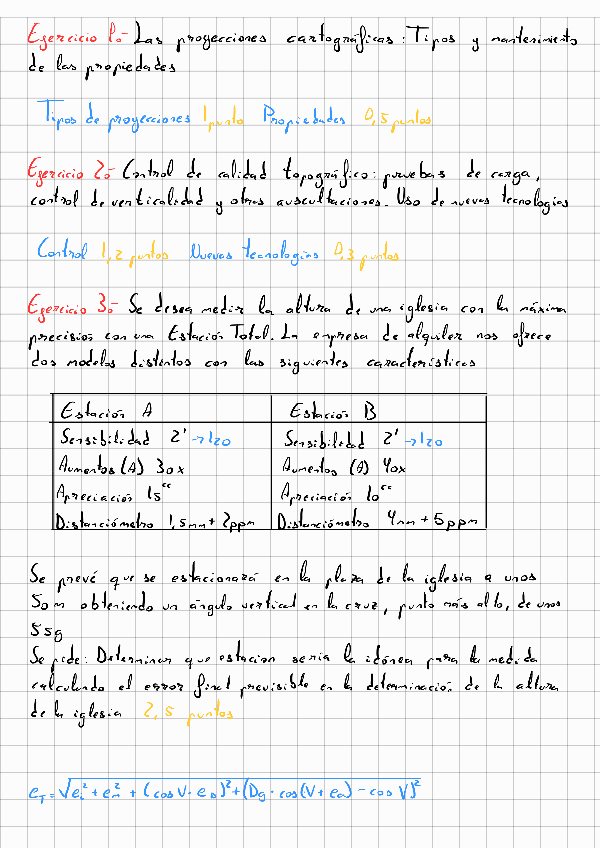 Ejercicio 1.- Las proyecciones cartográficas: Tipos y mantenimiento
de las propiedades
Tipos de proyecciones 1 punto Propiedades 0,5 puntos
Ejercicio 2.- Control de calidad topográfico: pruebas de carga,
control de verticalidad y otras auscultaciones. Uso de nuevas tecnologías
Control 1,2 puntos Nuevas tecnologías 0,3 puntos
Ejercicio 3.- Se desea medir la altura de una iglesia con la máxima
precisión con una Estación Total. La empresa de alquiler nos ofrece
dos modelos distintos con las siguientes características
Estación A Estación B
Sensibilidad 2' → 120 Sensibilidad 2' → 120
Aumentos (A) 30x Aumentos (A) 40x
Apreciación 15cc Apreciación 10cc
Distanciómetro 1,5mm + 2ppm Distanciómetro 4mm + 5ppm
Se prevé que se estacionará en la plaza de la iglesia a unos
50m obteniendo un ángulo vertical en la cruz, punto más alto, de unos
55g
Se pide: Determinar que estación sería la idónea para la medida
calculando el error final previsible en la determinación de la altura
de la iglesia 2,5 puntos